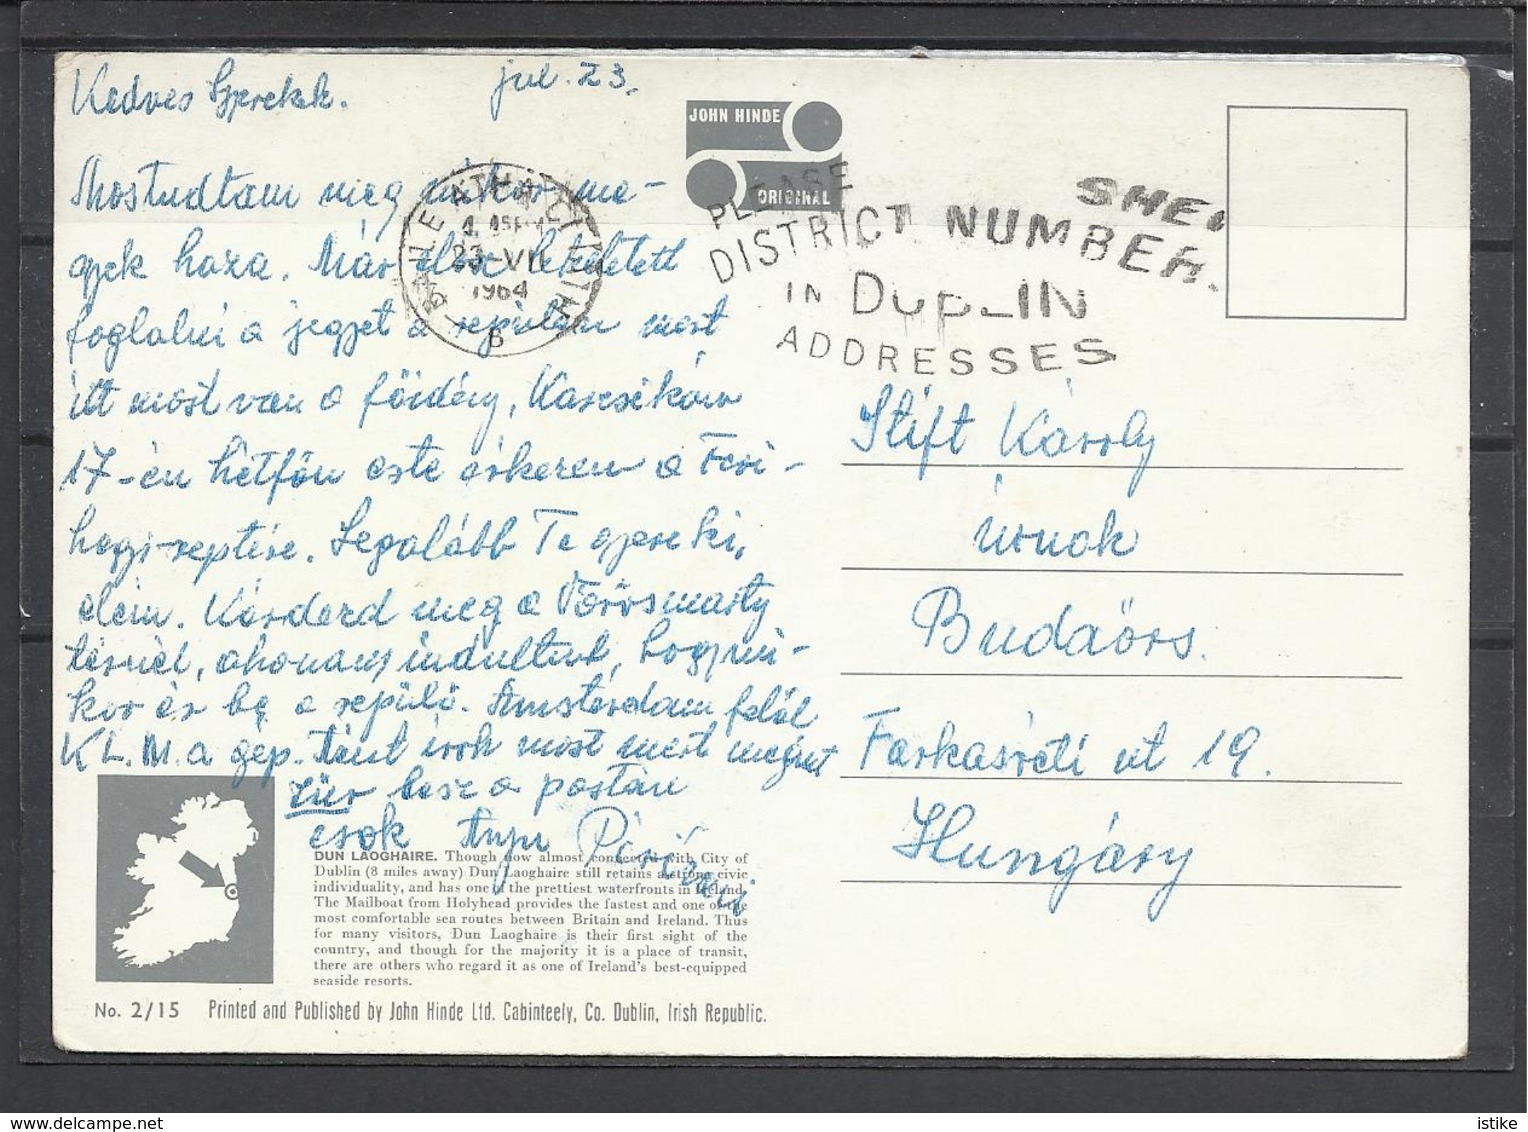 Kedves Gyerekek.
jul. 23.
Mostudtam meg mikor me-
gyek haza. Már előre lehetett
foglalni a jegyet a repülőn mert
itt most van a főidény,
17-én hétfőn este érkezem a Feri-
hegyi reptére. Legalább Te gyere ki,
elém. Kérdezd meg a Vörösmarty
térnél, ahonnan indultunk, hogy mi-
kor ér be a repülő. Amsterdam felől
K.L.M. a gép. írok most mert megint
zűr lesz a postán
csok Anyu
JOHN HINDE
ORIGINAL
BAILE ATHA CLIATH
23 VII
1964
6
PLEASE
DISTRICT NUMBER
IN DUBLIN
ADDRESSES
Stift Károly
úrnak
Budaörs.
Farkasréti út 19.
Hungáry
DUN LAOGHAIRE. Though now almost connected with City of
Dublin (8 miles away) Dun Laoghaire still retains a strong civic
individuality, and has one of the prettiest waterfronts in Ireland.
The Mailboat from Holyhead provides the fastest and one of the
most comfortable sea routes between Britain and Ireland. Thus
for many visitors, Dun Laoghaire is their first sight of the
country, and though for the majority it is a place of transit,
there are others who regard it as one of Ireland's best-equipped
seaside resorts.
No. 2/15 Printed and Published by John Hinde Ltd. Cabinteely, Co. Dublin, Irish Republic.
delcampe.net
istike